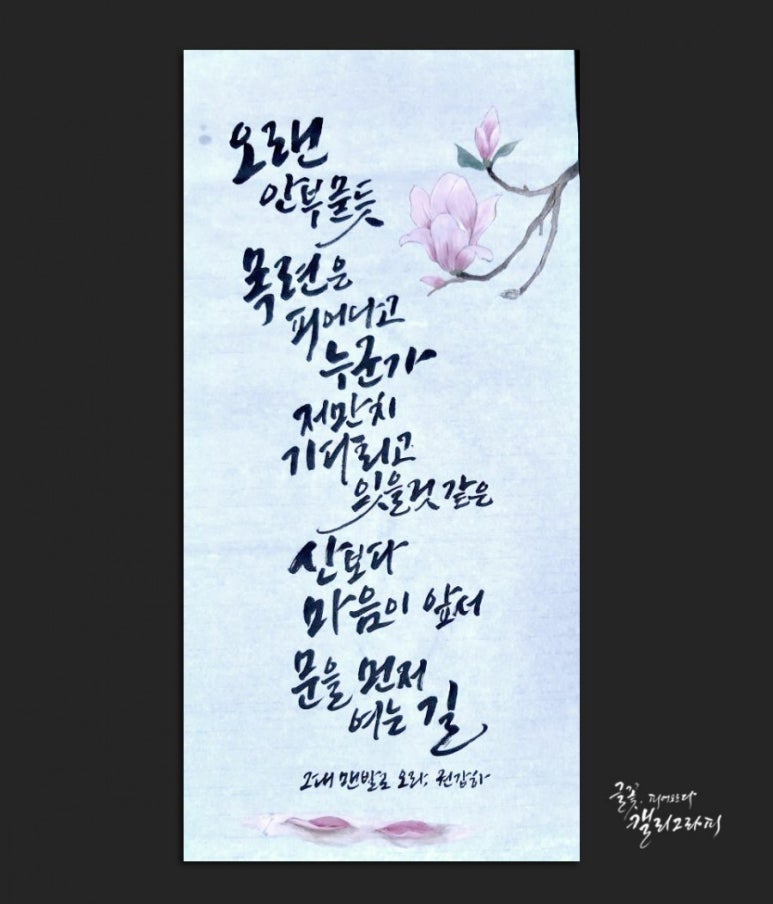 오랜
안부물듯
목련은
피어나고
누군가
저만치
기다리고
있을것 같은
신보다
마음이 앞서
문을 먼저
여는 길
그대 맨발로 오라, 권갑하
글꽃, 피어나다
캘리그라피